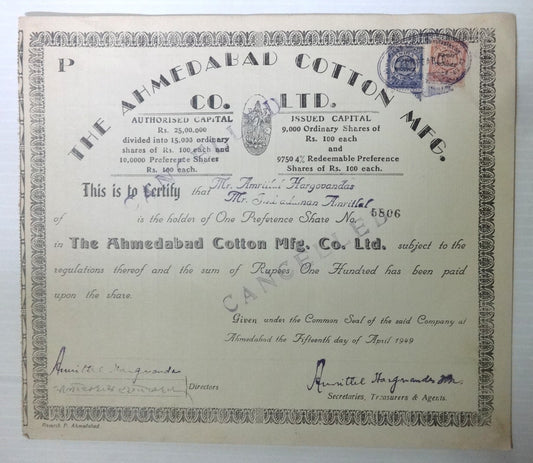 P
THE AHMEDABAD COTTON MFG.
CO. LTD.
AUTHORISED CAPITAL
Rs. 25,00,000
divided into 15,000 ordinary
shares of Rs. 100 each and
10,0000 Preference Shares
Rs. 100 each.
ISSUED CAPITAL
9,000 Ordinary Shares of
Rs. 100 each
and
9750 4% Redeemable Preference
Shares of Rs. 100 each.
CANCELLED
This is to Certify that Mr. Amritlal Hargovandas
Mr. Amritlal
of is the holder of One Preference Share No. 5806
in The Ahmedabad Cotton Mfg. Co. Ltd. subject to the
regulations thereof and the sum of Rupees One Hundred has been paid
upon the share.
CANCELLED
Given under the Common Seal of the said Company at
Ahmedabad the Fifteenth day of April 1949
Amrittal Hargovandas
Directors
Amrittal Hargovandas
Secretaries, Treasurers & Agents.
P. Ahmedabad